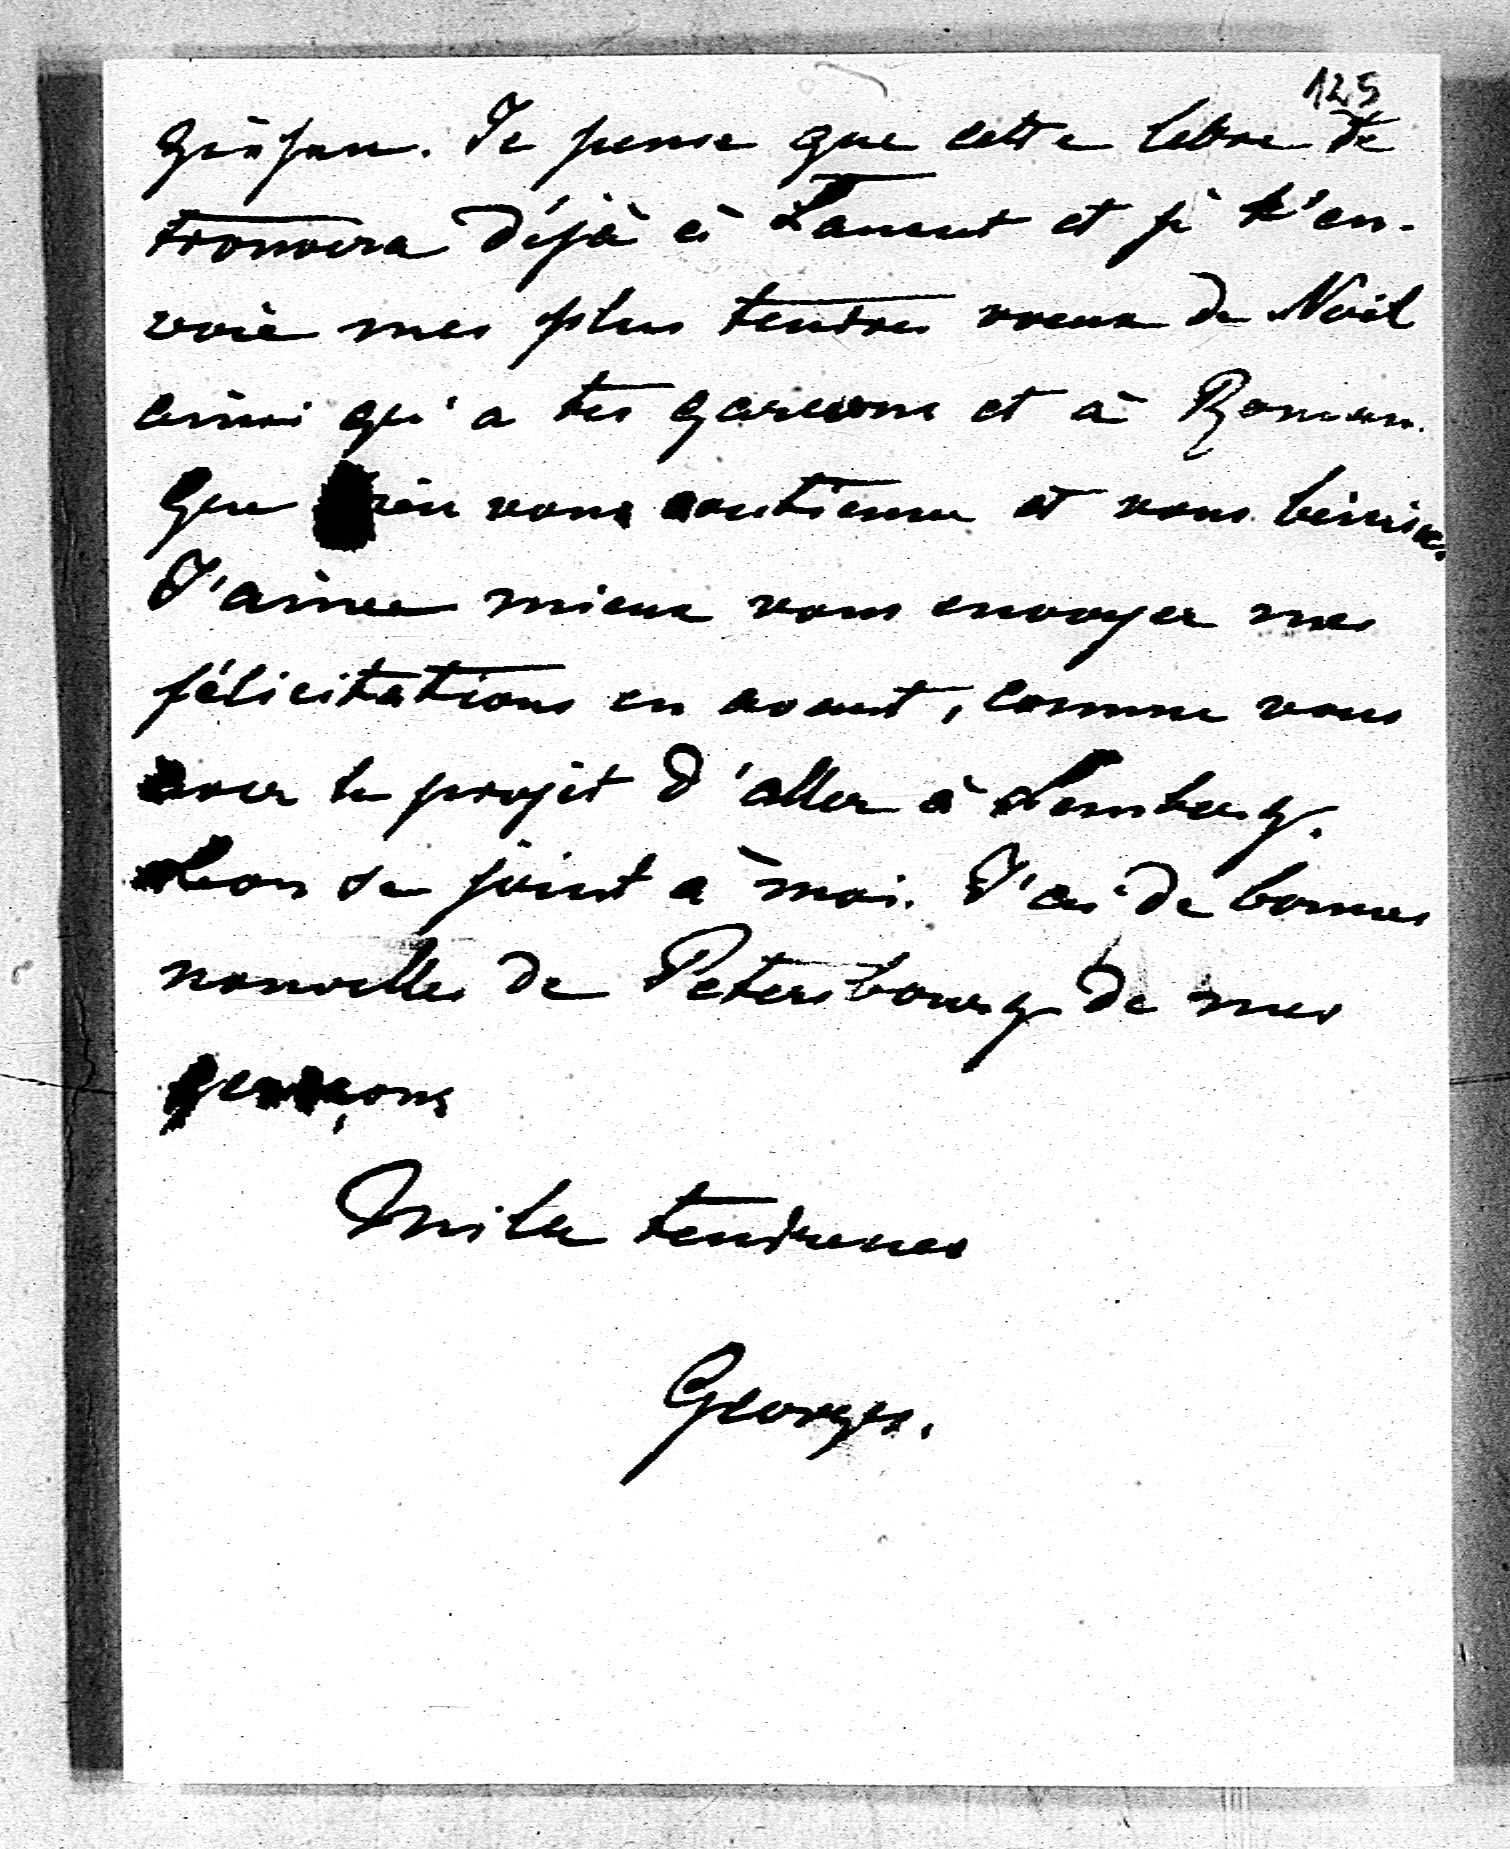 125
Je pense que cette lettre te
trouvera déjà à Lancut et je t'en-
voie mes plus tendres voeux de Noël
ainsi qu'a tes garcons et à Roman.
Que Dieu vous soutienne et vous bénisse.
J'aime mieux vous envoyer mes
félicitations en avant, comme vous
avez le projet d'aller à Lemberg.
Léon se joint a moi. J'ai de bonnes
nouvelles de Petersbourg de mes
garçons
Mille tendresses
Georges.